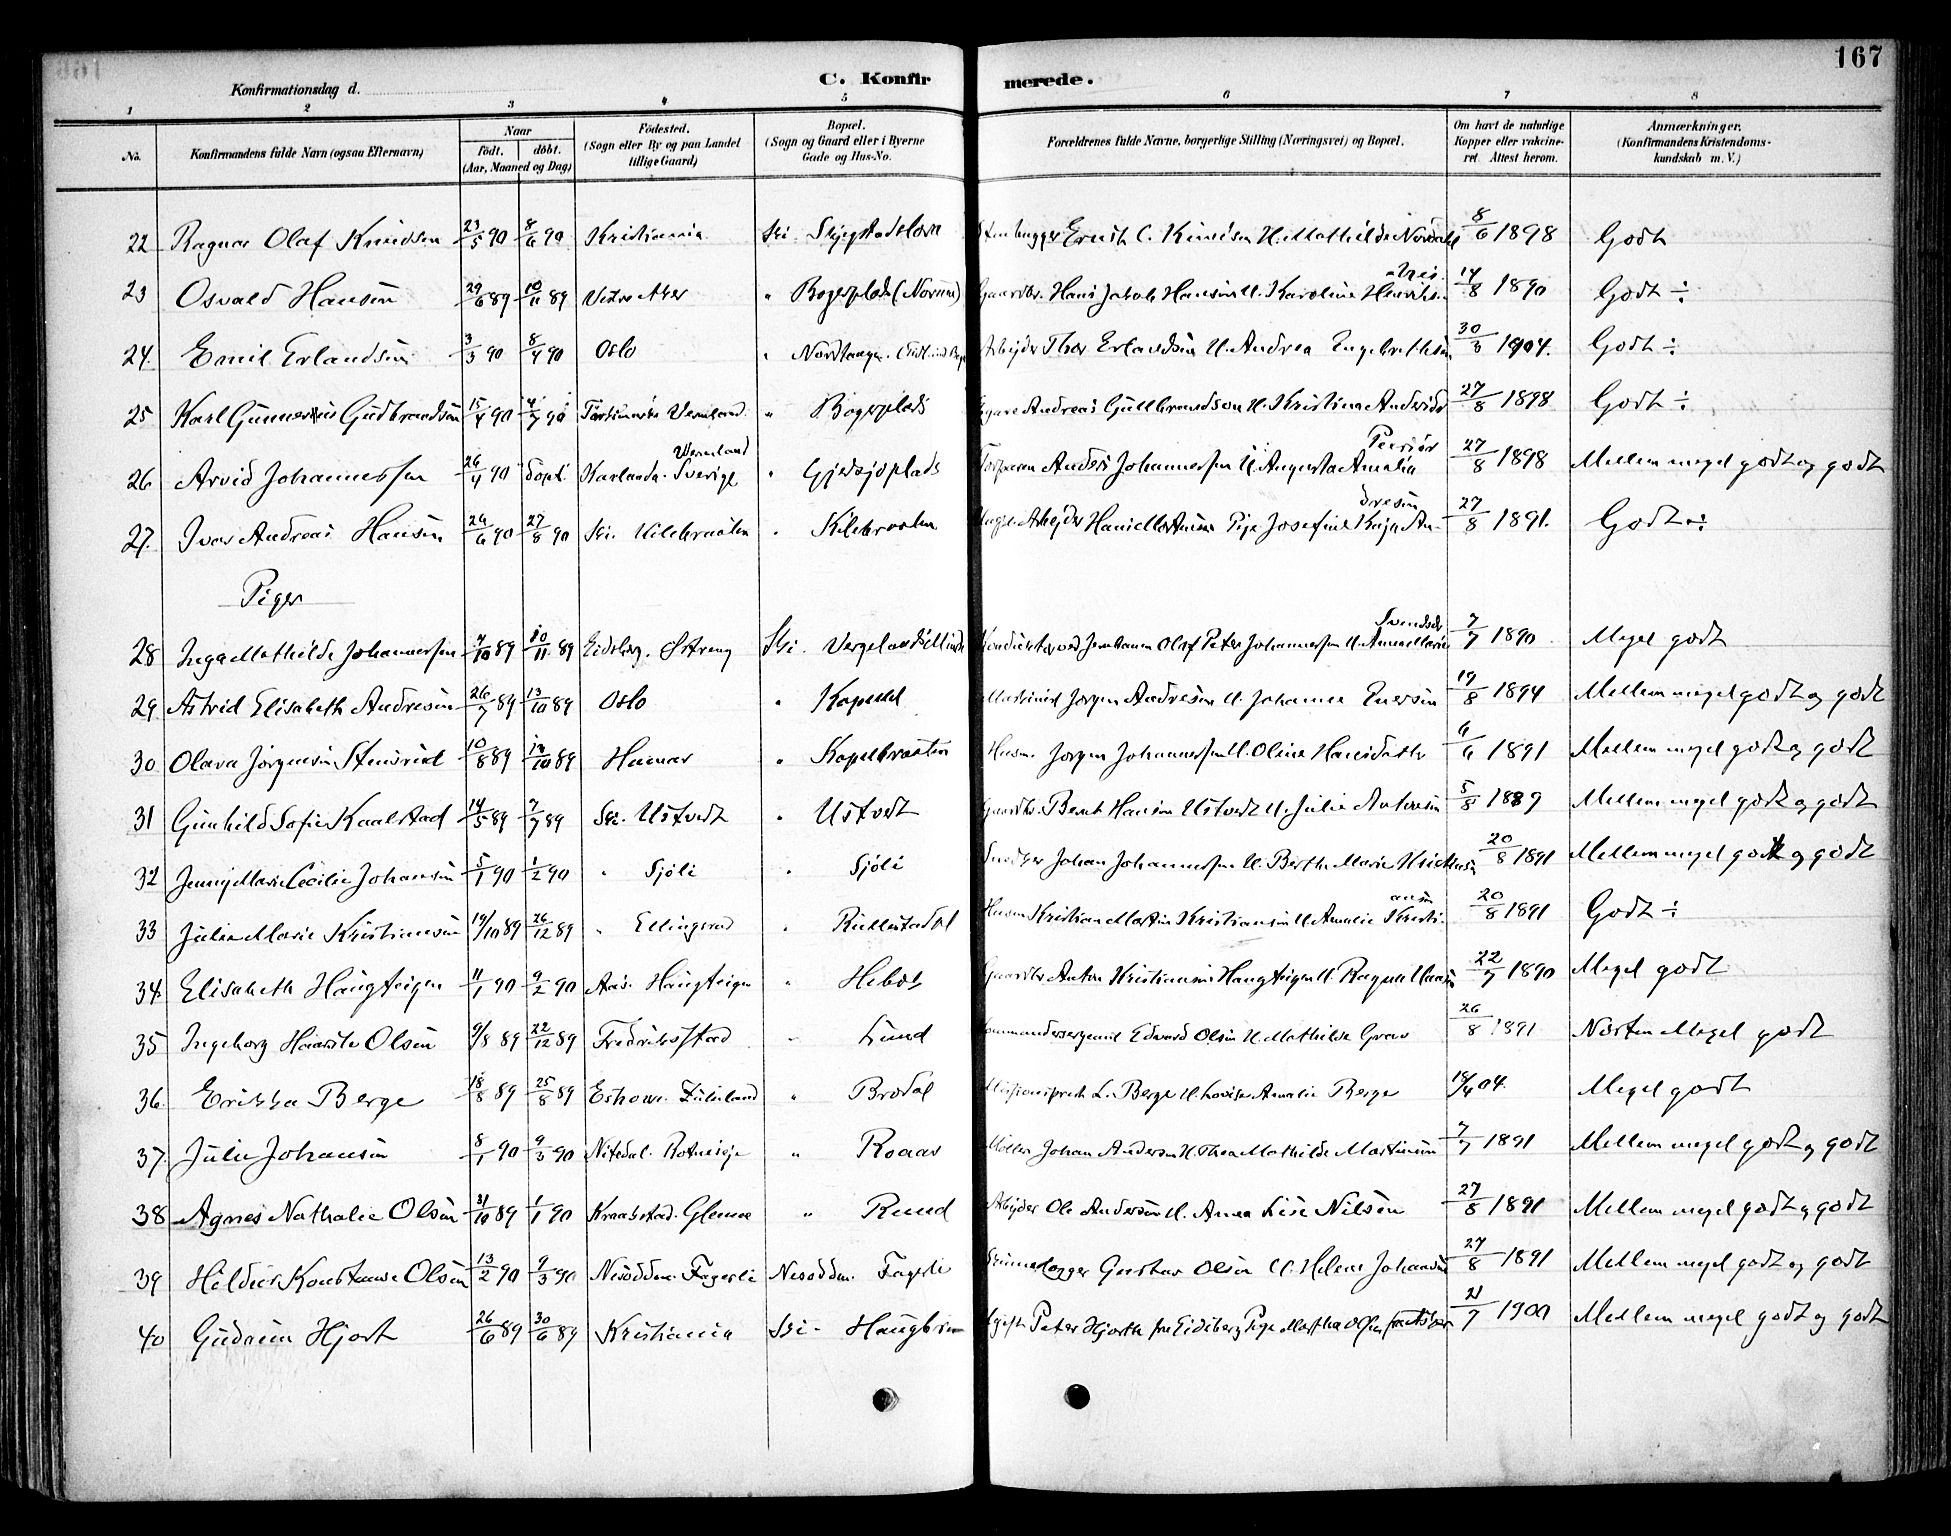 167
Konfirmationsdag d.
C. Konfirmerede.
1 2 3 4 5 6 7 8
No. Konfirmandens fulde Navn (ogsaa Efternavn) Naar født. døbt. (Aar, Maaned og Dag) Fødested. (Sogn eller By og paa Landet tillige Gaard) Bopæl. (Sogn og Gaard eller i Byerne Gade og Hus-No. Forældrenes fulde Navne, borgerlige Stilling (Næringsvei) og Bopæl. Om havt de naturlige Kopper eller vakcineret. Attest herom. Anmærkninger. (Konfirmandens Kristendomskundskab m. V.)
22 Ragnar Olaf Knudsen 23/5 90 8/6 90 Kristiania Ski. Ernst C. Knudsen U. Mathilde 8/6 1898 Godt
23 Osvald Hansen 29/6 89 10/11 89 Vestre Aker " Bøgerplads Gaardbr. Hans Jakob Hansen U. Karoline 14/8 1890 Godt ÷
24. Emil Erlandsen 3/3 90 8/4 90 Oslo " Arbejder Thor Erlandsen U. Andrea Engebrethsen 30/3 1904. Godt ÷
25 Karl Gunnerius Gudbrandsen 15/4 90 4/7 90 Vermland " Bøgerplads Andreas Gullbrandson U. Kristina 27/8 1898 Godt ÷
26 Arvid Johannessen 26/4 90 døpt. Karlanda. Sverige Vermland " Gjedsjøplads Anders Johannessen U. Augusta Amalia 27/8 1898 Mellem meget godt og godt
27. Ivar Andreas Hansen 24/6 90 27/8 90 Ski. Kilebraaten " Kilebraaten Arbejder Pige Josefine Kaja Andresen 27/8 1891. Godt ÷
Piger
28 Inga Mathilde Johannessen 4/10 89 10/11 89 Eidsberg. Ski. Konduktør ved Jernbanen Olaf Peter Johannessen U. Anne Marie 7/7 1890 Meget godt
29 Astrid Elisabeth Andresen 26/7 89 13/10 89 Oslo " Kapelld Maskinist Jørgen Andresen U. Johanna 19/8 1894 Mellem meget godt og godt
30 Olava Jørgensen Stensrud 10/8 89 /10 89 Hamar " Kapelbraaten Husm. Jørgen Johannessen U. Oline Hansdatter 6/6 1891 Mellem meget godt og godt
31 Gunhild Sofie Kaalstad 14/5 89 7/7 89 Ski. Ustvedt " Ustvedt Gaardbr. Bernt Hansen Ustvedt U. Julie Antonsen 5/8 1889 Mellem meget godt og godt
32 Jenny Marie Cecilie Johansen 5/1 90 1/2 90 " Sjøli " Sjøli Johan Johannessen U. Berthe Marie 20/8 1891 Mellem meget godt og godt
33 Julie Marie Kristiansen 19/10 89 26/12 89 " Ellingsrud " Husm Kristian Martin Kristiansen U Amalie Kristiansen 20/8 1891 Godt ÷
34. Elisabeth Haugteigen 11/1 90 9/2 90 Aas. Haugteigen " Gaardbr Anton Kristiansen Haugteigen U. Ragna 22/7 1890 Meget godt
35 Ingeborg Olsen 9/8 89 22/12 89 Fredrikstad " Lund Kommandersergeant Edvard Olsen U. Mathilde Grav 26/8 1891 Næsten Meget godt
36. Erikka Berge 18/8 89 25/8 89 Eshowe. Zululand " Brodal Missionsprest L. Berge U. Lovise Amalie Berge 18/4 04. Meget godt
37. Julie Johansen 8/1 90 9/3 90 Nitedal. " Roaas Møller Johan Andersen U. Thea Mathilde Martinsen 7/7 1891 Mellem meget godt og godt
38 Agnes Nathalie Olsen 31/10 89 1/1 90 Kraakstad. Glenne " Ruud Arbejder Ole Andersen U. Anna Lise Nilsen 27/8 1891 Mellem meget godt og godt
39 Hildur Konstanse Olsen 13/2 90 9/3 90 Nesodden. Fagerli Nesodden. Fagerli Gustav Olsen U. Helene Johansen 27/8 1891 Mellem meget godt og godt
40 Gudrun Hjort 26/6 89 30/6 89 Kristiania Ski - Peter Hjorth fra Eidsberg Pige Martha Olsen 21/7 1900 Mellem meget godt og godt